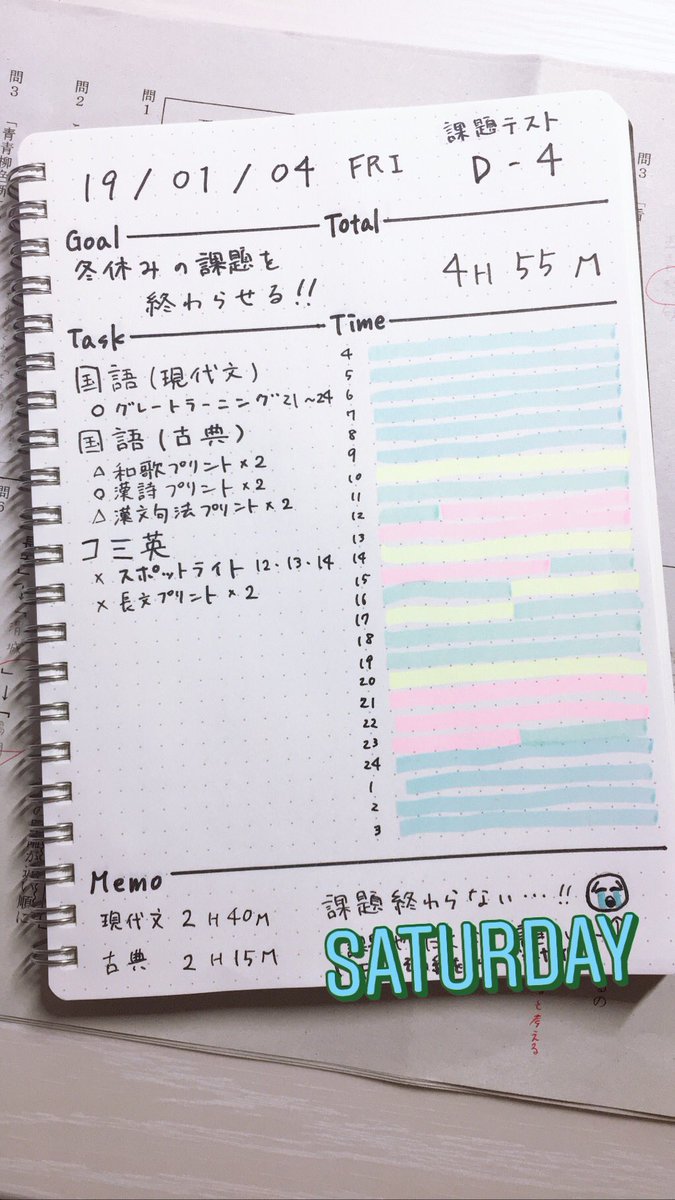 問1
問2
問3
「青青柳
問3
課題テスト
19/01/04 FRI D-4
Goal Total
冬休みの課題を
終わらせる!!
4H 55M
Task Time
国語(現代文)
○ グレートラーニング21~24
国語(古典)
△ 和歌プリント×2
○ 漢詩プリント×2
△ 漢文句法プリント×2
コミ英
× スポットライト 12・13・14
× 長文プリント×2
4
5
6
7
8
9
10
11
12
13
14
15
16
17
18
19
20
21
22
23
24
1
2
3
Memo
現代文 2H40M
古典 2H15M
課題終わらない…!!
SATURDAY
考える